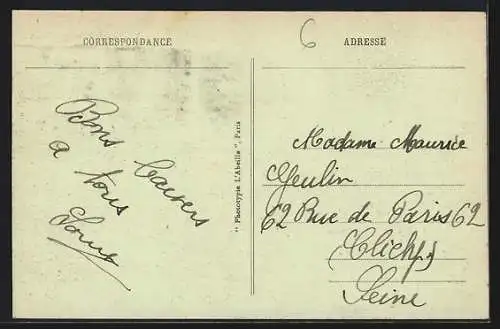 CORRESPONDANCE
6
ADRESSE
Bons baisers
a tous
"Phototypie L'Abeille", Paris
Madame Maurice
Geulin
62 Rue de Paris 62
(Clichy)
Seine